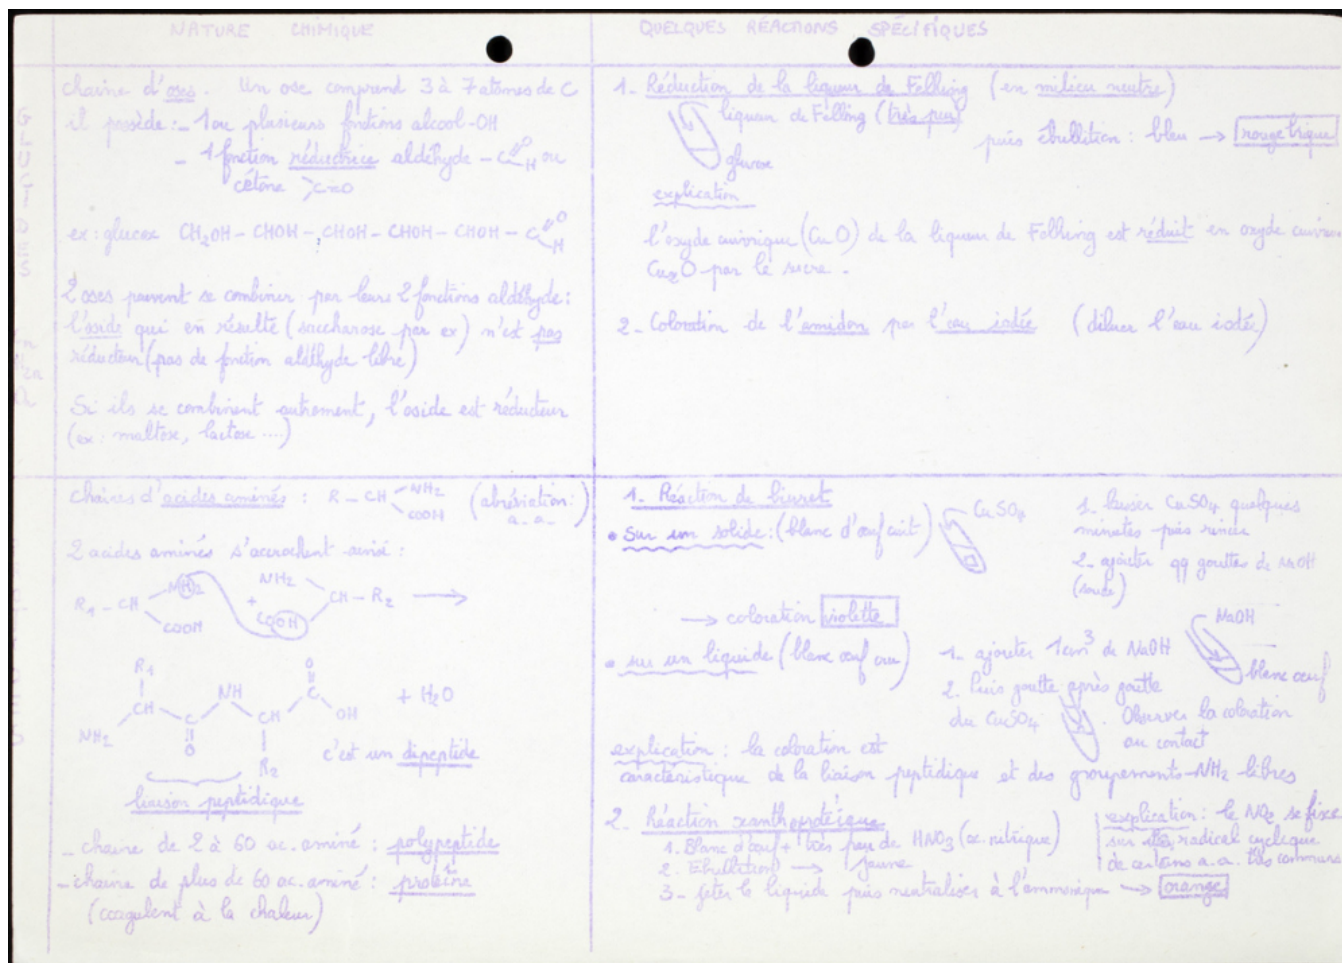 NATURE CHIMIQUE
QUELQUES RÉACTIONS SPÉCIFIQUES
GLUCIDES
chaine d'oses. Un ose comprend 3 à 7 atomes de C
il possède : - 1 ou plusieurs fonctions alcool-OH
- 1 fonction réductrice aldéhyde - C O H ou
cétone >C=O
ex : glucose CH2OH - CHOH - CHOH - CHOH - CHOH - C O H
2 oses peuvent se combiner par leurs 2 fonctions aldéhyde :
l'oside qui en résulte (saccharose par ex) n'est pas
réducteur (pas de fonction aldéhyde libre)
Si ils se combinent autrement, l'oside est réducteur
(ex : maltose, lactose ....)
1. Réduction de la liqueur de Fehling (en milieu neutre)
liqueur de Fehling (très peu)
puis ébullition : bleu → rouge brique
glucose
explication
l'oxyde cuivrique (CuO) de la liqueur de Fehling est réduit en oxyde
Cu2O par le sucre.
2. Coloration de l'amidon par l'eau iodée (diluer l'eau iodée)
chaines d'acides aminés : R - CH NH2 COOH (abréviation : a.a.)
2 acides aminés s'accrochent ainsi :
R1 - CH NH2 COOH + NH2 COOH CH - R2 →
R1 CH NH2 C O NH CH R2 C O OH + H2O
c'est un dipeptide
liaison peptidique
- chaine de 2 à 60 ac. aminé : polypeptide
- chaine de plus de 60 ac. aminé : protéine
(coagulent à la chaleur)
1. Réaction de biuret
• Sur un solide : (blanc d'œuf cuit)
CuSO4
1. laisser CuSO4 quelques
minutes puis rincer
2. ajouter qq gouttes de NaOH
(soude)
→ coloration violette
• sur un liquide (blanc œuf cru)
1. ajouter 1cm3 de NaOH
2. Puis goutte après goutte
du CuSO4. Observer la coloration
au contact
NaOH
blanc œuf
explication : la coloration est
caractéristique de la liaison peptidique et des groupements-NH2 libres
2. Réaction xanthoprotéique
1. Blanc d'œuf + très peu de HNO3 (ac. nitrique)
2. Ebullition → jaune
3 - jeter le liquide puis neutraliser à l'ammoniaque → orange
explication : le NO2 se fixe
sur radical cyclique
de certains a.a. très communs